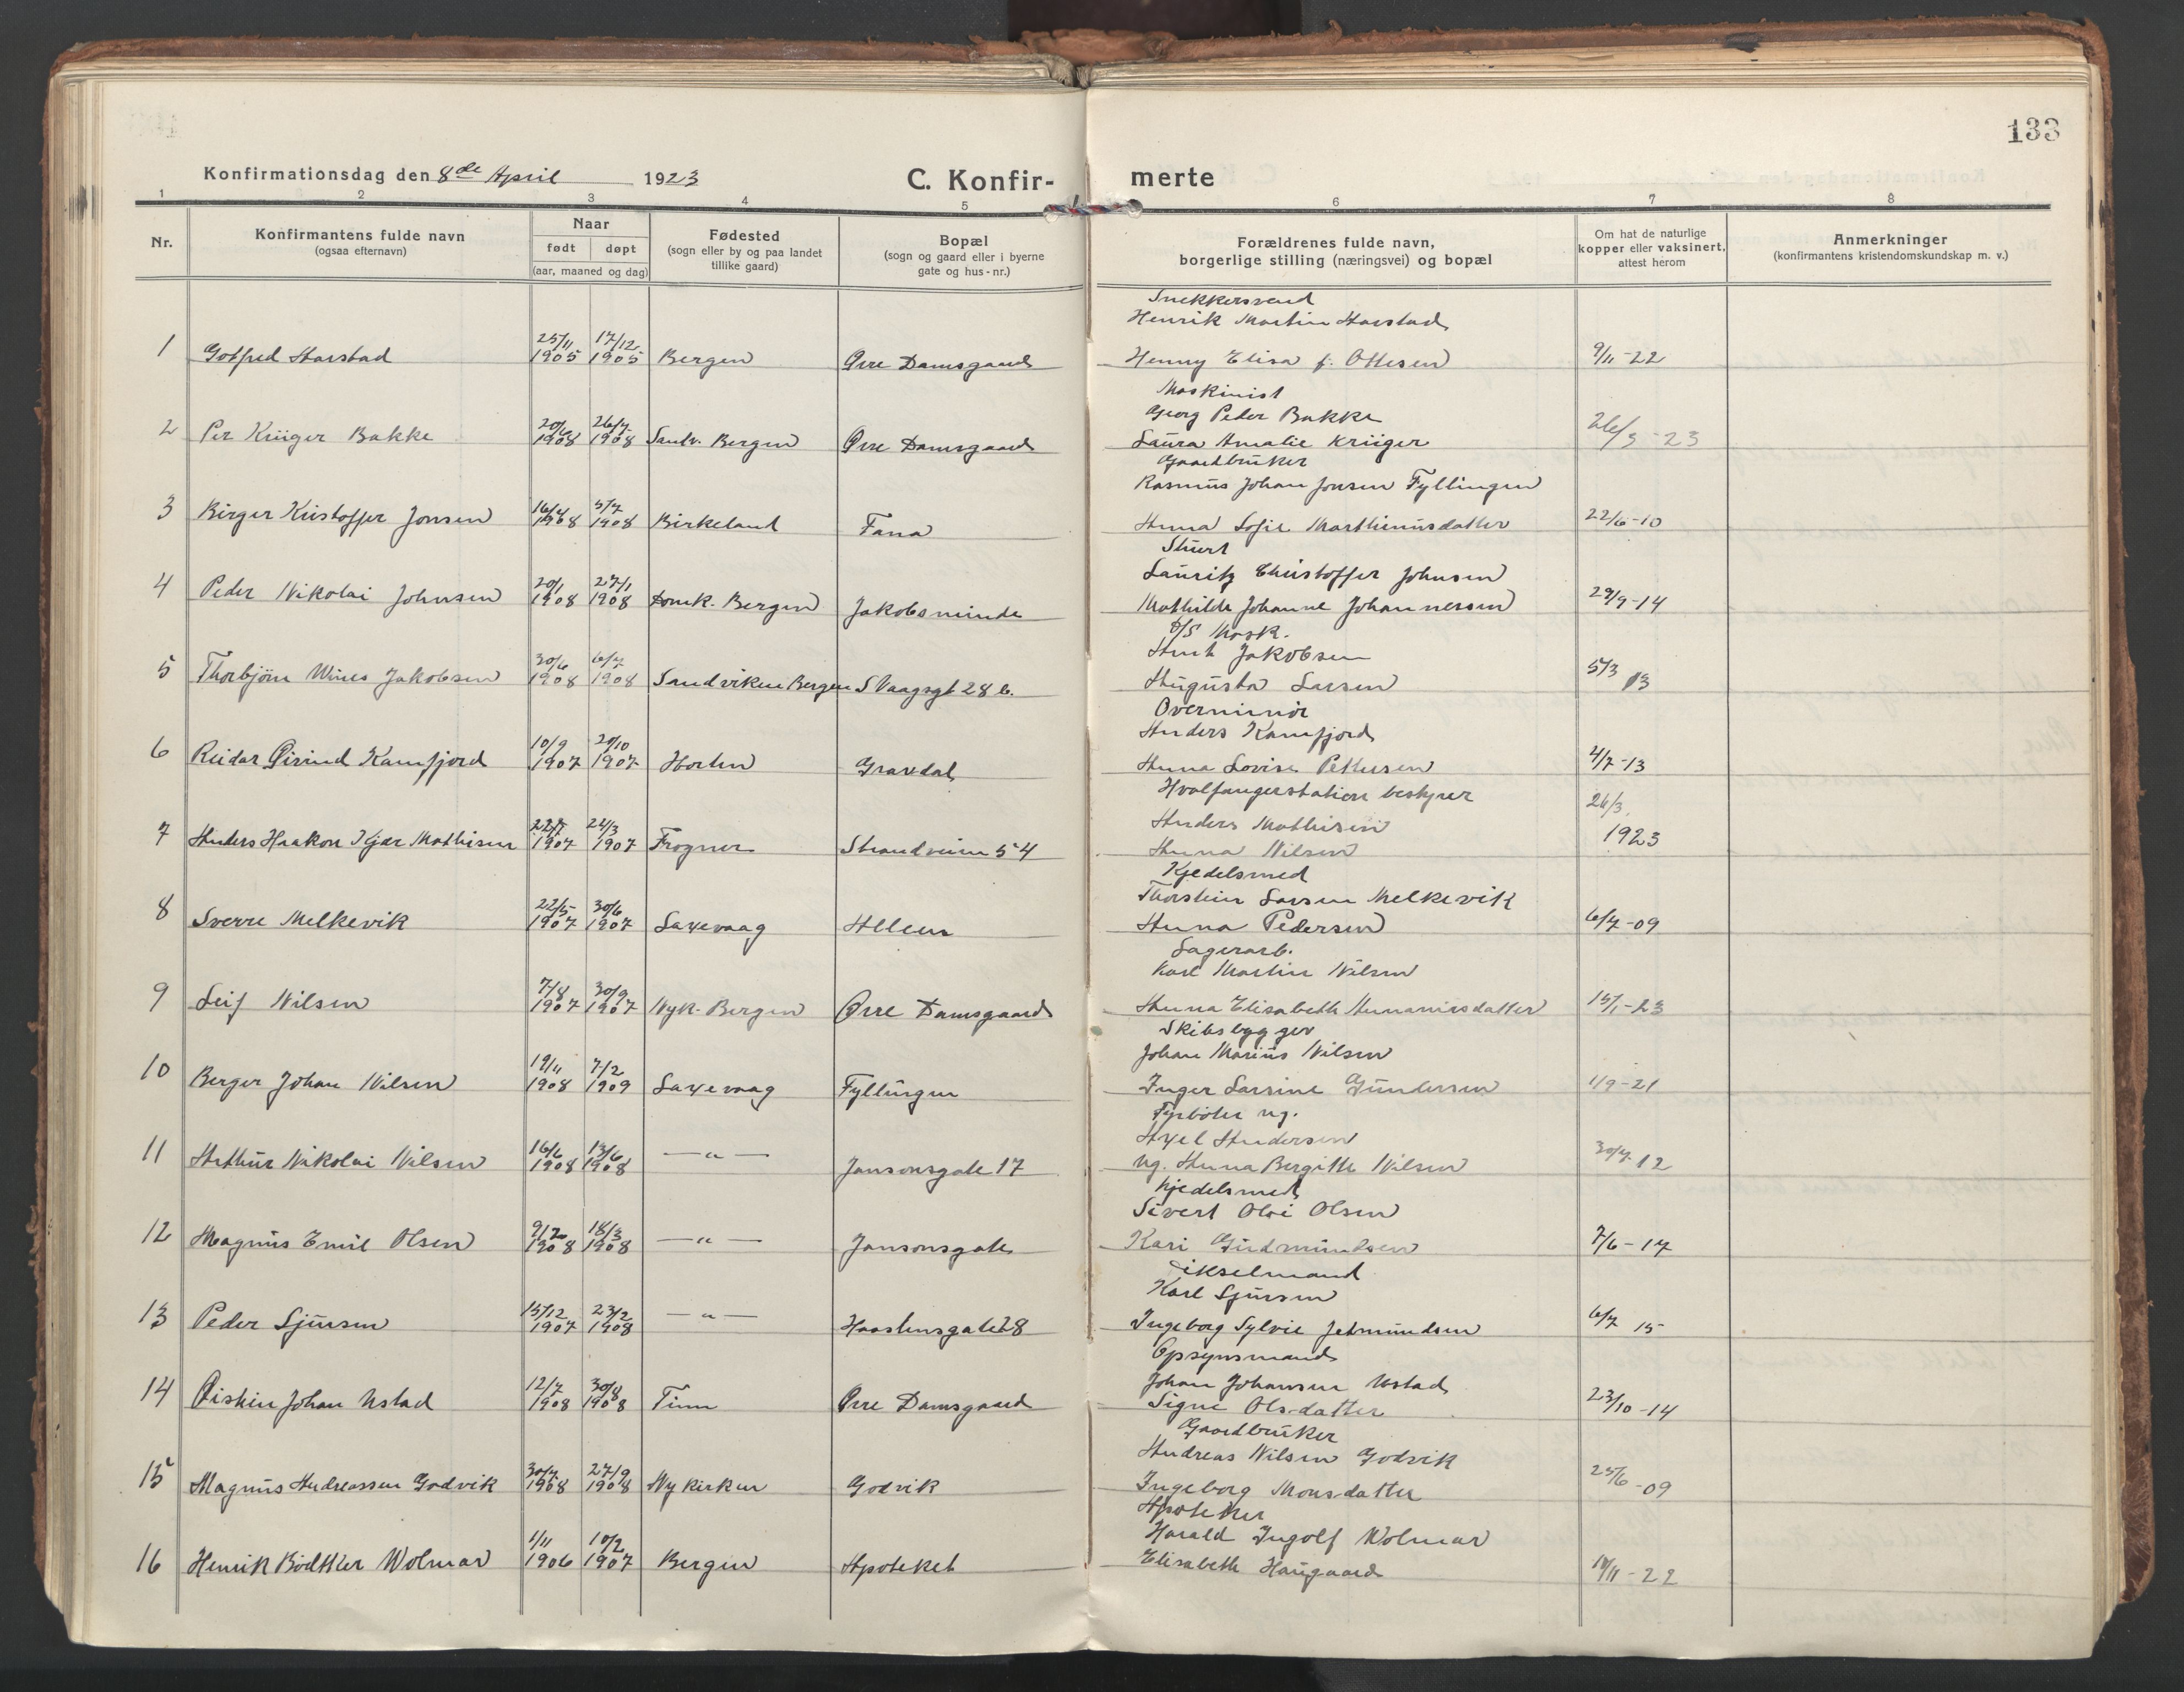 133
Konfirmationsdag den 8de April 1923
C. Konfir- merte
1 2 3 4 5 6 7 8
Nr.
Konfirmantens fulde navn
(ogsaa efternavn)
Naar
født døpt
(aar, maaned og dag)
Fødested
(sogn eller by og paa landet
tillike gaard)
Bopæl
(sogn og gaard eller i byerne
gate og hus-nr.)
Forældrenes fulde navn,
borgerlige stilling (næringsvei) og bopæl
Om hat de naturlige
kopper eller vaksinert,
attest herom
Anmerkninger
(konfirmantens kristendomskundskap m. v.)
Snekkersvend
Henrik Martin Harstad
1 Gotfred Harstad 25/11 1905 17/12 1905 Bergen Øvre Damsgaard Henny Elisa f. Ottesen 9/11-22
Maskinist
Georg Peder Bakke
2 Per Krüger Bakke 20/6 1908 26/7 1908 Sandv. Bergen Øvre Damsgaard Laura Amalie Krüger 26/3-23
Gaardbruker
Rasmus Johan Jonsen Fyllingen
3 Birger Kristoffer Jonsen 16/4 1908 5/7 1908 Birkeland Fana Anna Sofie Marthinusdatter 22/6-10
Stuert
Lauritz Christoffer Johnsen
4 Peder Nikolai Johnsen 20/1 1908 27/1 1908 Domk. Bergen Jakobsminde Mathilde Johanne Johannessen 29/9-14
D/S Mask.
Anth Jakobsen
5 Thorbjørn Wines Jakobsen 30/6 1908 6/7 1908 Sandviken Bergen S Vaagsgt 28 b. Augusta Larsen 5/3 13
Overminør
Anders Kamfjord
6 Reidar Øivind Kamfjord 10/9 1907 20/10 1907 Horten Gravdal Anna Lovise Pettersen 4/7-13
Hvalfangerstation bestyrer
Anders Mathisen
7 Anders Haakon Kjær Mathisen 1907 24/3 1907 Frogner Strandveien 54 Anna Nilsen 26/3 1923
Kjedelsmed
Thorstein Larsen Melkevik
8 Sverre Melkevik 22/5 1907 30/6 1907 Laxevaag Alleen Anna Pedersen 6/7-09
Lagerarb.
Karl Martin Nilsen
9 Leif Nilsen 7/8 1907 30/9 1907 Nyk. Bergen Øvre Damsgaard Anna Elisabeth Ananiasdatter 15/1-23
Skibsbygger
Johan Marius Nilsen
10 Berger Johan Nilsen 19/11 1908 7/2 1909 Laxevaag Fyllingen Inger Larsine Gundersen 1/9-21
Fyrbøter ug.
Axel Andersen
11 Arthur Nikolai Nilsen 16/6 1908 13/6 1908 —"— Jansonsgate 17 ug. Anna Bergitte Nilsen 30/7-12
Kjedelsmed
Sivert Olai Olsen
12 Magnus Emil Olsen 9/2 1908 18/3 1908 —"— Jansonsgate Kari Gudmundsen 7/6-17
Dikselmand
Karl Sjursen
13 Peder Sjursen 15/12 1907 23/2 1908 —"— Haastensgate 28 Ingeborg Sylvie Jetmundsen 6/7 15
Opsynsmand
Johan Johansen Ustad
14 Øistein Johan Ustad 12/7 1908 30/8 1908 Tinn Øvre Damsgaard Signe Olsdatter 23/10-14
Gaardbruker
Andreas Nilsen Godvik
15 Magnus Andreassen Godvik 30/7 1908 27/9 1908 Nykirken Godvik Ingeborg Monsdatter 25/6-09
Apoteker
Harald Ingolf Wolmar
16 Henrik Bødtker Wolmar 1/11 1906 10/2 1907 Bergen Apoteket Elisabeth Haugaard 10/11-22